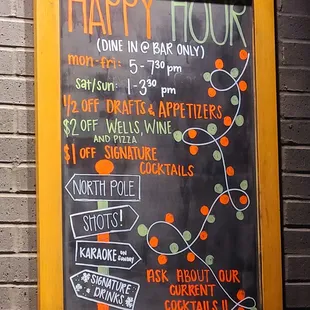 HAPPY HOUR
(DINE IN @ BAR ONLY)
mon-fri: 5-7:30 pm
sat/sun: 1-3:30 pm
1/2 OFF DRAFTS & APPETIZERS
$2 OFF WELLS, WINE
AND PIZZA
$1 OFF SIGNATURE
COCKTAILS
NORTH POLE
SHOTS!
KARAOKE
SIGNATURE
DRINKS
ASK ABOUT OUR
CURRENT
COCKTAILS!!